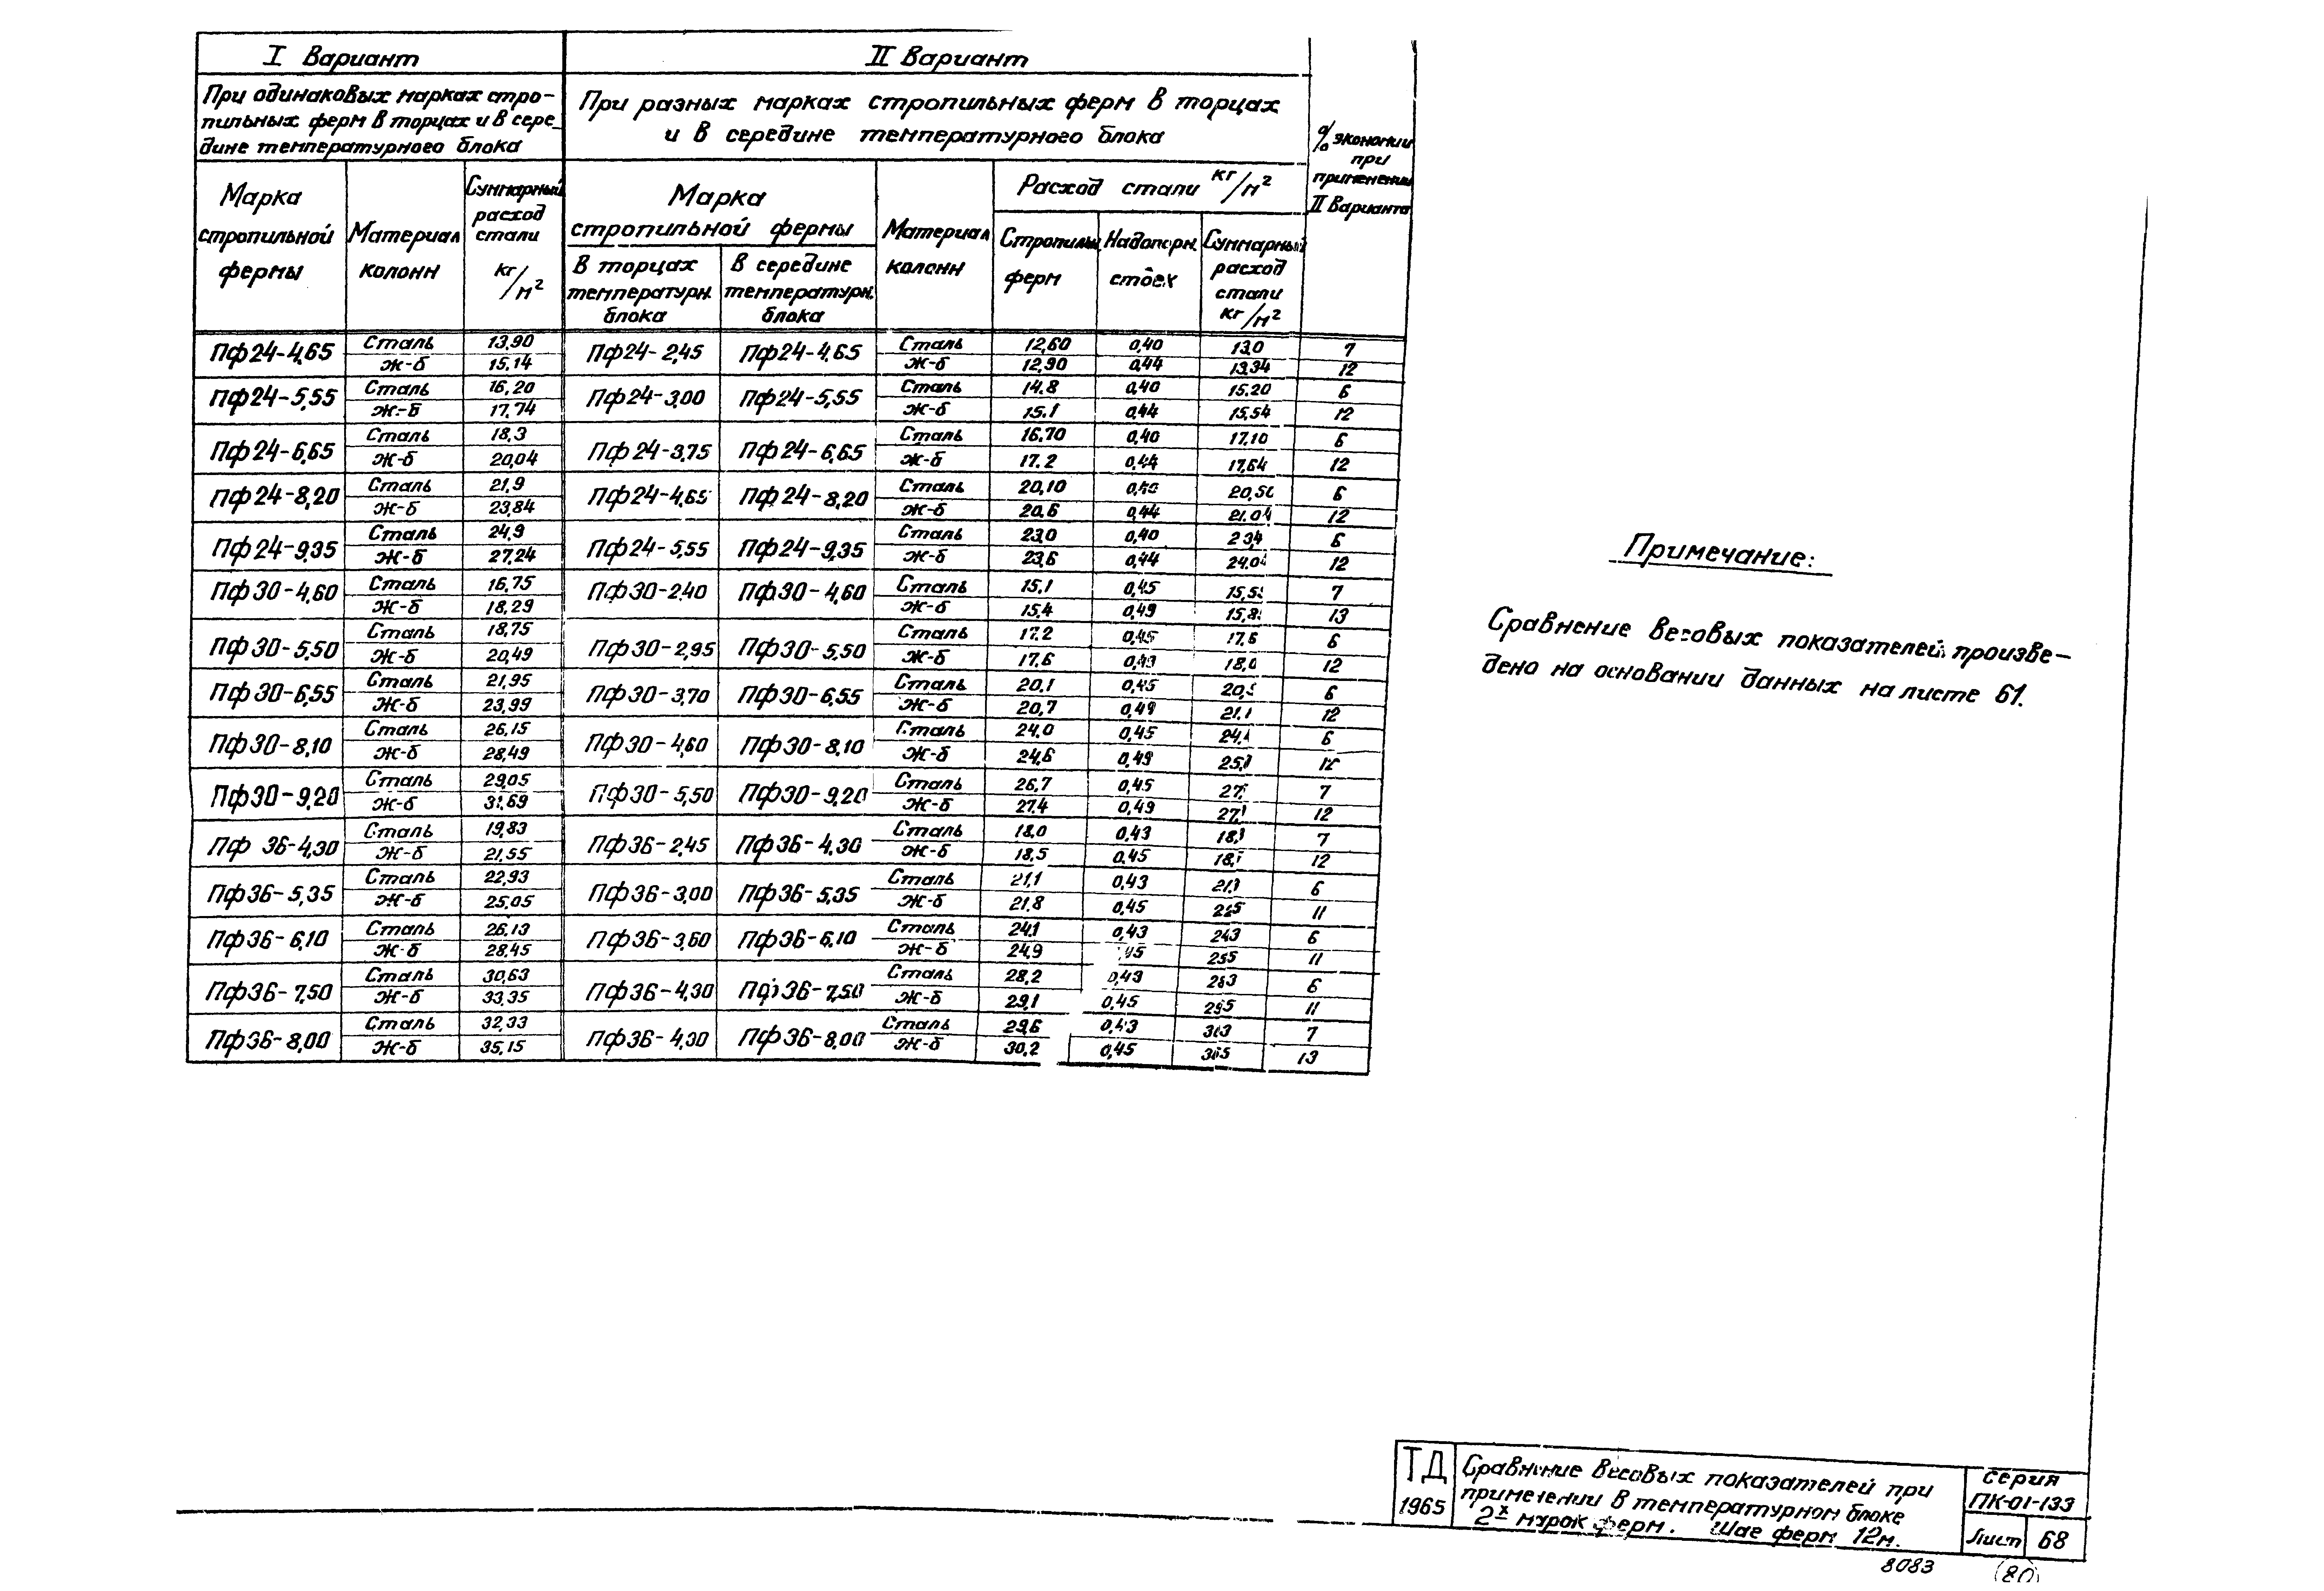 I Вариант
II Вариант
При одинаковых марках стро-
пильных ферм в торцах и в сере-
дине температурного блока
При разных марках стропильных ферм в торцах
и в середине температурного блока
% экономии
при
применении
II Варианта
Марка
стропильной
фермы
Материал
колонн
Суммарный
расход
стали
кг/м²
Марка
стропильной фермы
В торцах
температурн.
блока
В середине
температурн.
блока
Материал
колонн
Расход стали кг/м²
Стропильн.
ферм
Надопорн.
стоек
Суммарный
расход
стали
кг/м²
Пф24-4,65 Сталь 13,90 Пф24-2,45 Пф24-4,65 Сталь 12,60 0,40 13,0 7
Ж-б 15,14 Ж-б 12,90 0,44 13,34 12
Пф24-5,55 Сталь 16,20 Пф24-3,00 Пф24-5,55 Сталь 14.8 0,40 15.20 6
Ж-б 17.74 Ж-б 15.1 0,44 15,54 12
Пф24-6,65 Сталь 18,3 Пф24-3,75 Пф24-6,65 Сталь 16.70 0,40 17.10 6
Ж-б 20,04 Ж-б 17.2 0,44 17,64 12
Пф24-8,20 Сталь 21,9 Пф24-4,65 Пф24-8,20 Сталь 20,10 0,40 20,50 6
Ж-б 23,84 Ж-б 20.6 0,44 21.04 12
Пф24-9,35 Сталь 24,9 Пф24-5,55 Пф24-9,35 Сталь 23,0 0,40 23,4 6
Ж-б 27,24 Ж-б 23,6 0,44 24.04 12
Пф30-4,60 Сталь 16,75 Пф30-2,40 Пф30-4,60 Сталь 15,1 0,45 15,5 7
Ж-б 18,29 Ж-б 15,4 0,49 15,8 13
Пф30-5,50 Сталь 18,75 Пф30-2,95 Пф30-5,50 Сталь 17.2 0,45 17,6 6
Ж-б 20,49 Ж-б 17,6 0,49 18,0 12
Пф30-6,55 Сталь 21,95 Пф30-3,70 Пф30-6,55 Сталь 20,1 0,45 20,5 6
Ж-б 23,99 Ж-б 20,7 0,49 21,1 12
Пф30-8,10 Сталь 26,15 Пф30-4,60 Пф30-8,10 Сталь 24,0 0,45 24, 6
Ж-б 28,49 Ж-б 24,6 0,49 25, 12
Пф30-9,20 Сталь 29,05 Пф30-5,50 Пф30-9,20 Сталь 26,7 0,45 27, 7
Ж-б 31,69 Ж-б 27.4 0,49 27, 12
Пф 36-4,30 Сталь 19,83 Пф36-2,45 Пф36-4,30 Сталь 18,0 0,43 18, 7
Ж-б 21,55 Ж-б 18,5 0,45 18, 12
Пф36-5,35 Сталь 22,93 Пф36-3,00 Пф36-5,35 Сталь 21,1 0,43 21, 6
Ж-б 25,05 Ж-б 21.8 0,45 11
Пф36-6,10 Сталь 26,13 Пф36-3,60 Пф36-6,10 Сталь 24,1 0,43 6
Ж-б 28,45 Ж-б 24,9 11
Пф36-7,50 Сталь 30,63 Пф36-4,30 Пф36-7,50 Сталь 28,2 0,43 6
Ж-б 33,35 Ж-б 29,1 0,45 11
Пф36-8,00 Сталь 32,33 Пф36-4,30 Пф36-8,00 Сталь 29,6 0,43 7
Ж-б 35,15 Ж-б 30,2 0,45 13
Примечание:
Сравнение весовых показателей произве-
дено на основании данных на листе 61.
ТД
1965
Сравнение весовых показателей при
применении в температурном блоке
2х марок ферм. Шаг ферм 12м.
серия
ПК-01-133
Лист 68
8083
80